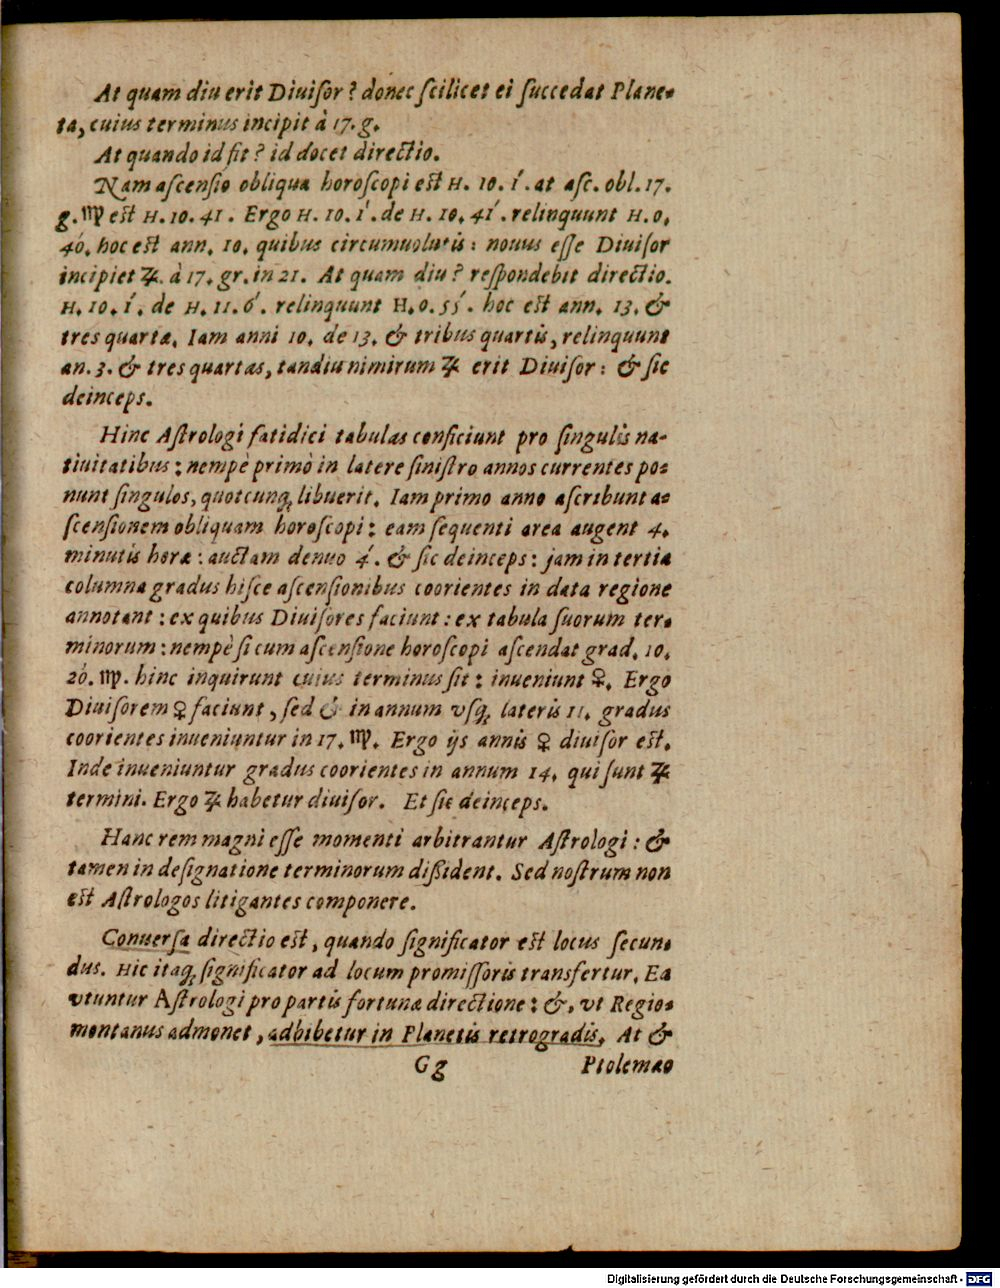 At quam diu erit Diuiſor? donec ſcilicet ei ſuccedat Plane-
ta, cuius terminus incipit à 17. g.
At quando id fit? id docet directio.
Nam aſcenſio obliqua horoſcopi eſt H. 10. 1́. at aſc. obl. 17.
g. ♍ eſt H. 10. 41. Ergo H. 10. 1́. de H. 10. 41́. relinquunt H. 0.
40́. hoc eſt ann. 10. quibus circumuolutis: nouus eſſe Diuiſor
incipiet ♃. à 17. gr. in 21. At quam diu? reſpondebit directio.
H. 10. 1́. de H. 11. 6́. relinquunt H. 0. 55́. hoc eſt ann. 13. &
tres quartæ. Iam anni 10. de 13. & tribus quartis, relinquunt
an. 3. & tres quartas, tandiu nimirum ♃ erit Diuiſor: & ſic
deinceps.
Hinc Aſtrologi fatidici tabulas conficiunt pro ſingulis na-
tiuitatibus: nempè primò in latere ſiniſtro annos currentes po-
nunt ſingulos, quotcunq́; libuerit. Iam primo anno aſcribunt a-
ſcenſionem obliquam horoſcopi: eam ſequenti area augent 4.
minutis horæ: auctam denuo 4́. & ſic deinceps: jam in tertia
columna gradus hiſce aſcenſionibus coorientes in data regione
annotant: ex quibus Diuiſores faciunt: ex tabula ſuorum ter-
minorum: nempè ſi cum aſcenſione horoſcopi aſcendat grad. 10.
20́. ♍. hinc inquirunt cuius terminus ſit: inueniunt ♀. Ergo
Diuiſorem ♀ faciunt, ſed & in annum vſq́; lateris 11. gradus
coorientes inueniuntur in 17. ♍. Ergo ijs annis ♀ diuiſor eſt.
Inde inueniuntur gradus coorientes in annum 14. qui ſunt ♃
termini. Ergo ♃ habetur diuiſor. Et ſic deinceps.
Hanc rem magni eſſe momenti arbitrantur Aſtrologi: &
tamen in deſignatione terminorum dißident. Sed noſtrum non
eſt Aſtrologos litigantes componere.
Conuerſa directio eſt, quando ſignificator eſt locus ſecun-
dus. Hic itaq́; ſignificator ad locum promiſſoris transfertur. Ea
vtuntur Aſtrologi pro partis fortunæ directione: &, vt Regio-
montanus admonet, adhibetur in Planetis retrogradis. At &
Gg Ptolemæo
Digitalisierung gefördert durch die Deutsche Forschungsgemeinschaft - DFG